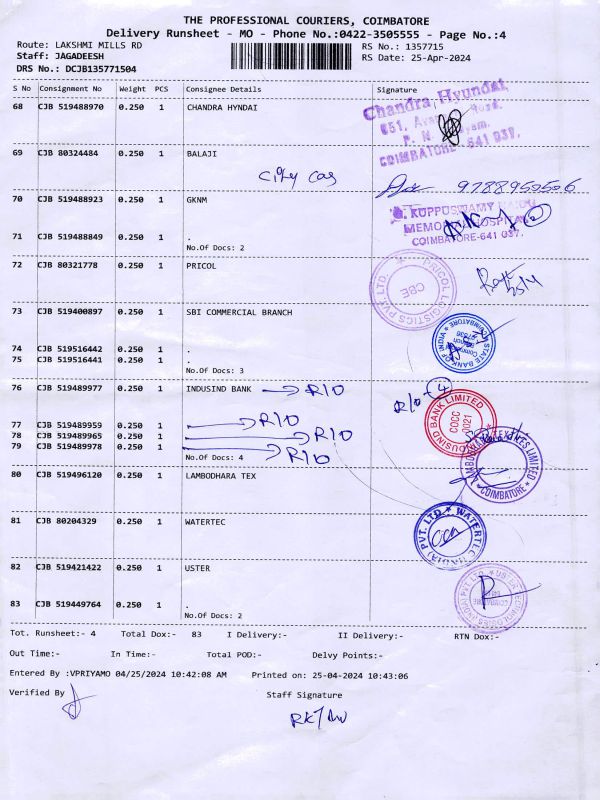 THE PROFESSIONAL COURIERS, COIMBATORE
Delivery Runsheet - MO - Phone No.:0422-3505555 - Page No.:4
Route: LAKSHMI MILLS RD RS No.: 1357715
Staff: JAGADEESH RS Date: 25-Apr-2024
DRS No.: DCJB135771504
S No Consignment No Weight PCS Consignee Details Signature
68 CJB 519488970 0.250 1 CHANDRA HYNDAI
Chandra Hyundai,
COIMBATORE - 641 037.
69 CJB 80324484 0.250 1 BALAJI
City Cas
9788952526
70 CJB 519488923 0.250 1 GKNM
KUPPUSWAMY NAIDU
MEMORIAL HOSPITAL
COIMBATORE-641 037.
2
71 CJB 519488849 0.250 1 .
No.Of Docs: 2
72 CJB 80321778 0.250 1 PRICOL
PRICOL LOGISTICS PVT. LTD.
CBE
73 CJB 519400897 0.250 1 SBI COMMERCIAL BRANCH
STATE BANK OF INDIA
COIMBATORE
74 CJB 519516442 0.250 1 .
75 CJB 519516441 0.250 1 .
No.Of Docs: 3
76 CJB 519489977 0.250 1 INDUSIND BANK R/O
R/O 4
INDUSIND BANK LIMITED
COCC
0021
77 CJB 519489959 0.250 1 . R/O
78 CJB 519489965 0.250 1 . R/O
79 CJB 519489978 0.250 1 . R/O
No.Of Docs: 4
80 CJB 519496120 0.250 1 LAMBODHARA TEX
LAMBODHARA TEXTILES LIMITED
COIMBATORE
81 CJB 80204329 0.250 1 WATERTEC
WATERTEC (INDIA) PVT. LTD.
82 CJB 519421422 0.250 1 USTER
83 CJB 519449764 0.250 1 .
No.Of Docs: 2
Tot. Runsheet:- 4 Total Dox:- 83 I Delivery:- II Delivery:- RTN Dox:-
Out Time:- In Time:- Total POD:- Delvy Points:-
Entered By :VPRIYAMO 04/25/2024 10:42:08 AM Printed on: 25-04-2024 10:43:06
Verified By Staff Signature